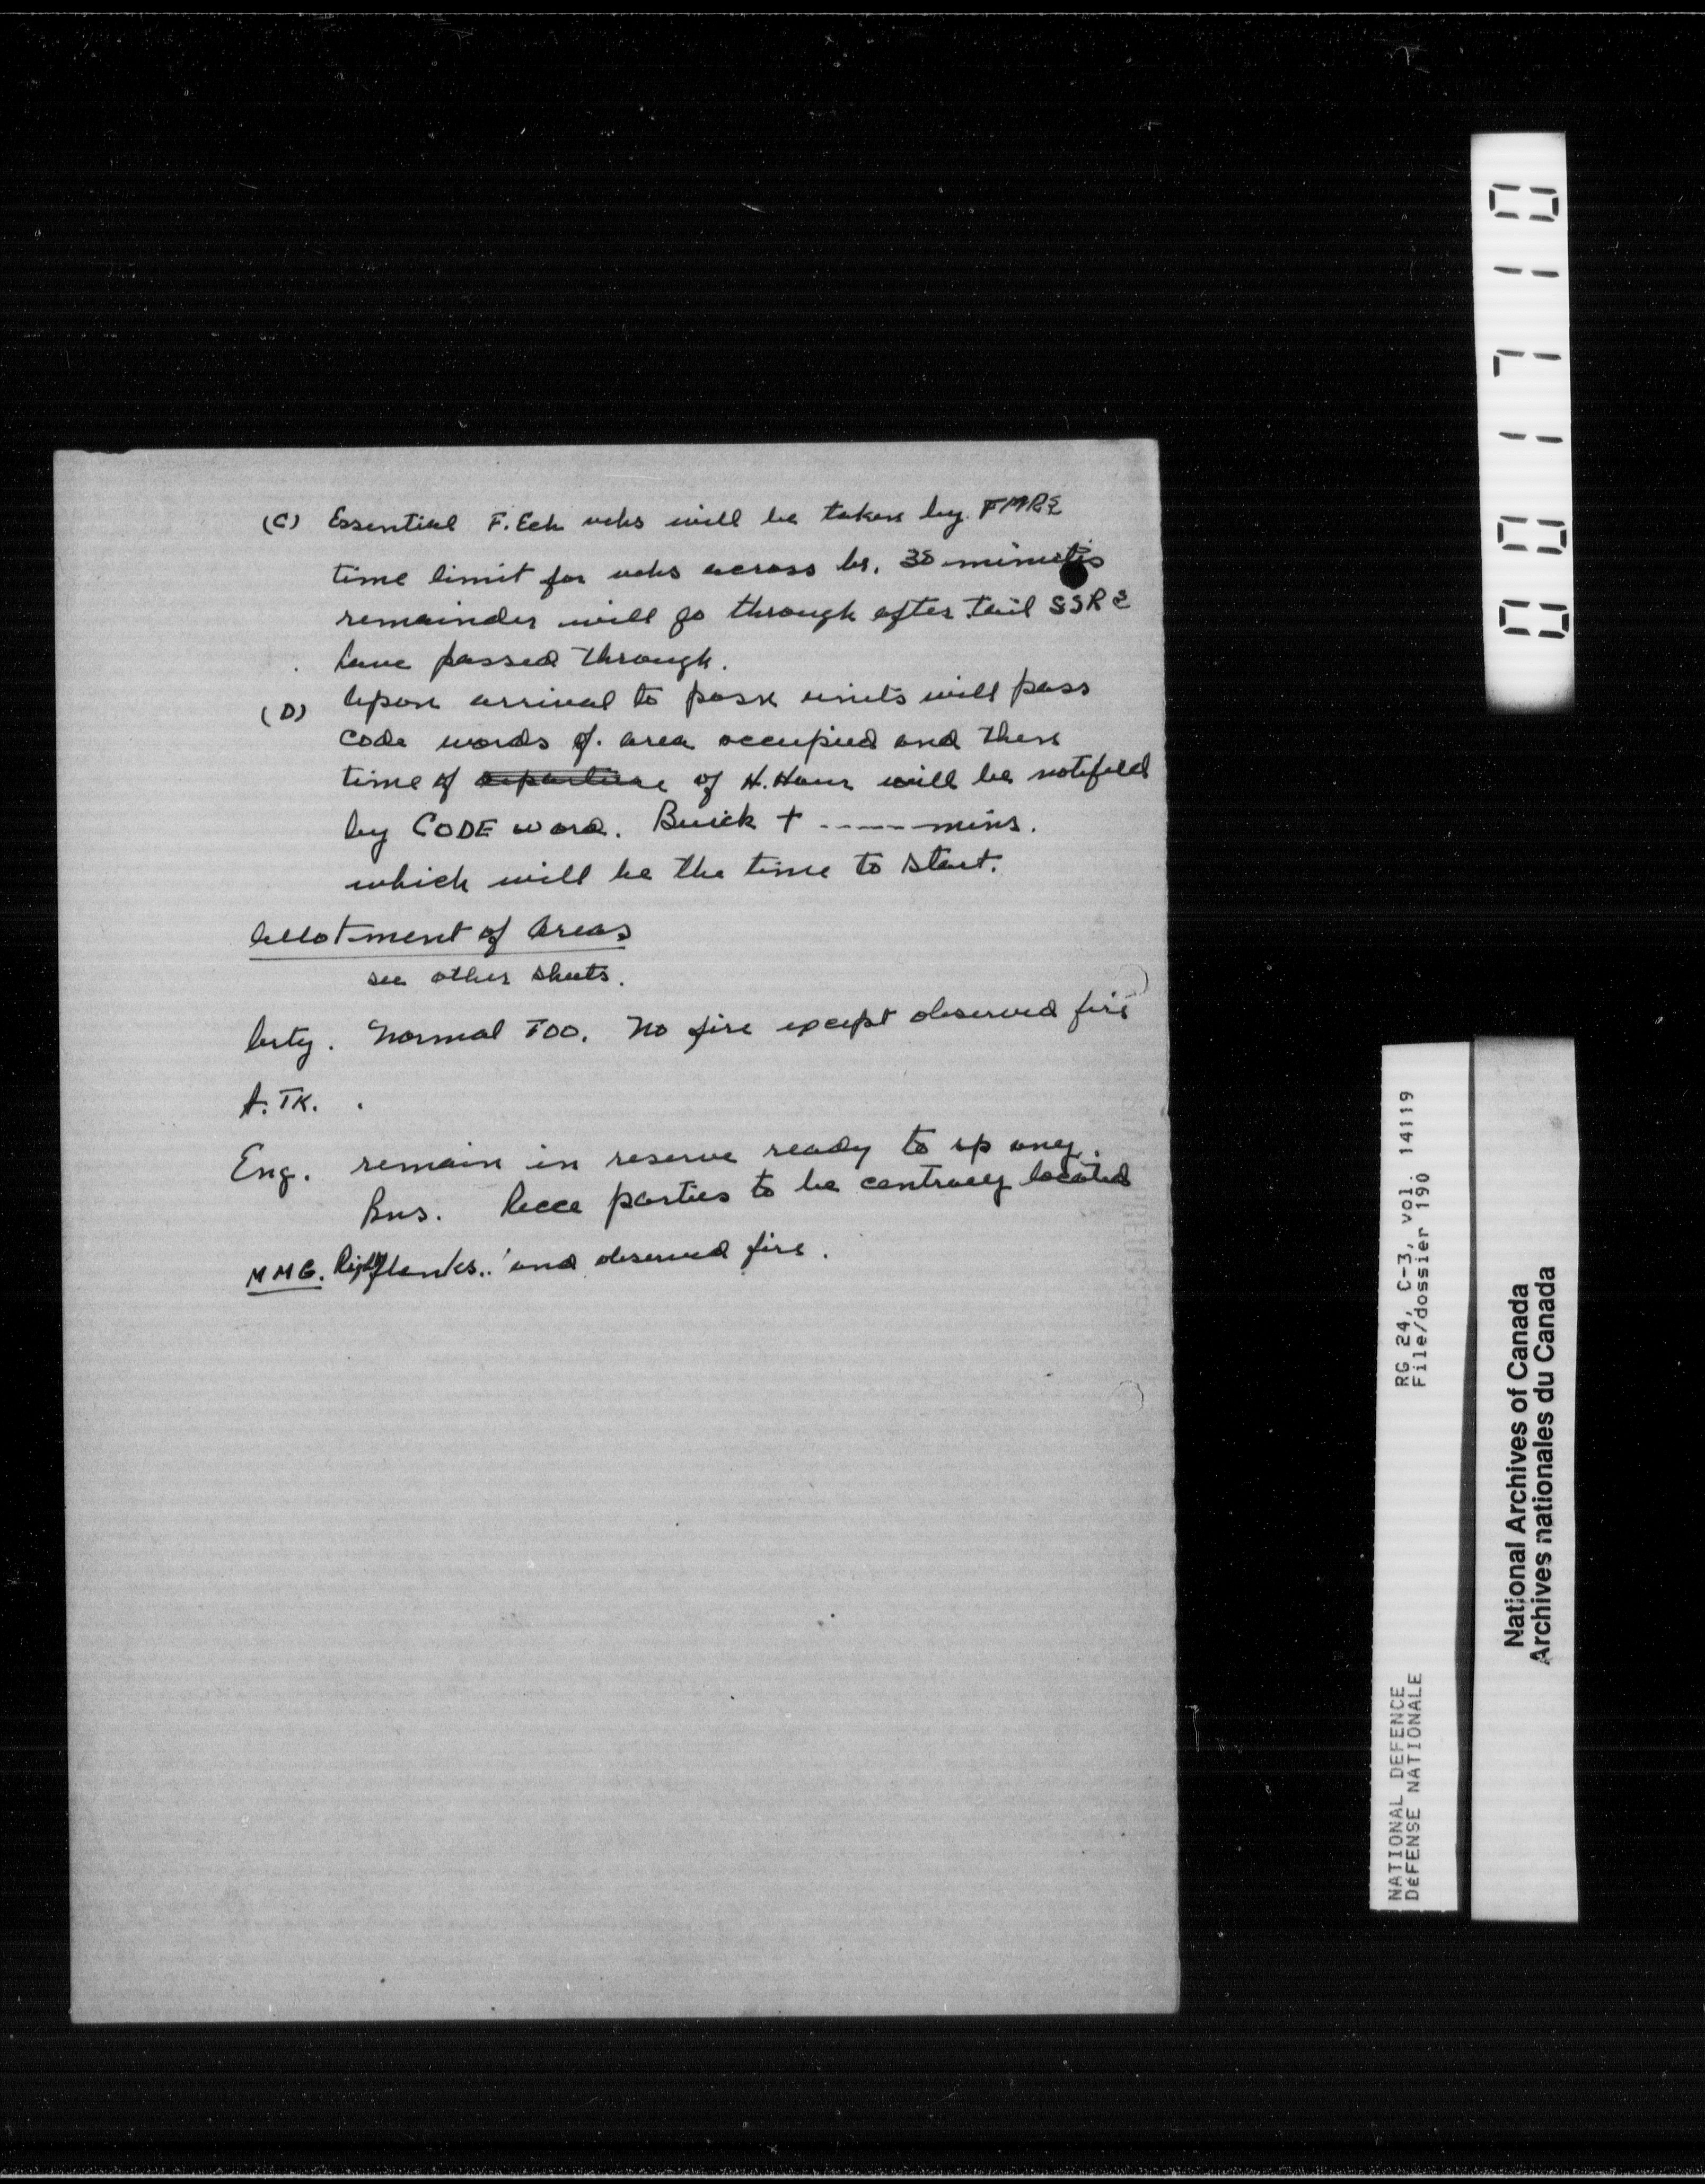 (C) Essential F. Ech vehs will be taken by FMRs
time limit for vehs across br. 30 minutes
remainder will go through after tail SSRs
have passed through.
(D) Upon arrival to posn units will pass
code words of area occupied and then
time of departure of H. Hour will be notifed
by CODE word. Buick + ----- mins.
which will be the time to start.
Allotment of Areas
see other sheets.
Arty. Normal TOO. No fire except observed fire
A. TK. .
Eng. remain in reserve ready to sp any.
Bns. Recce parties to be centrally located
MMG. Right flanks.. and observed fire.
001710
RG 24, C-3, vol. 14119
File/dossier 190
NATIONAL DEFENCE
DéFENSE NATIONALE
National Archives of Canada
Archives nationales du Canada